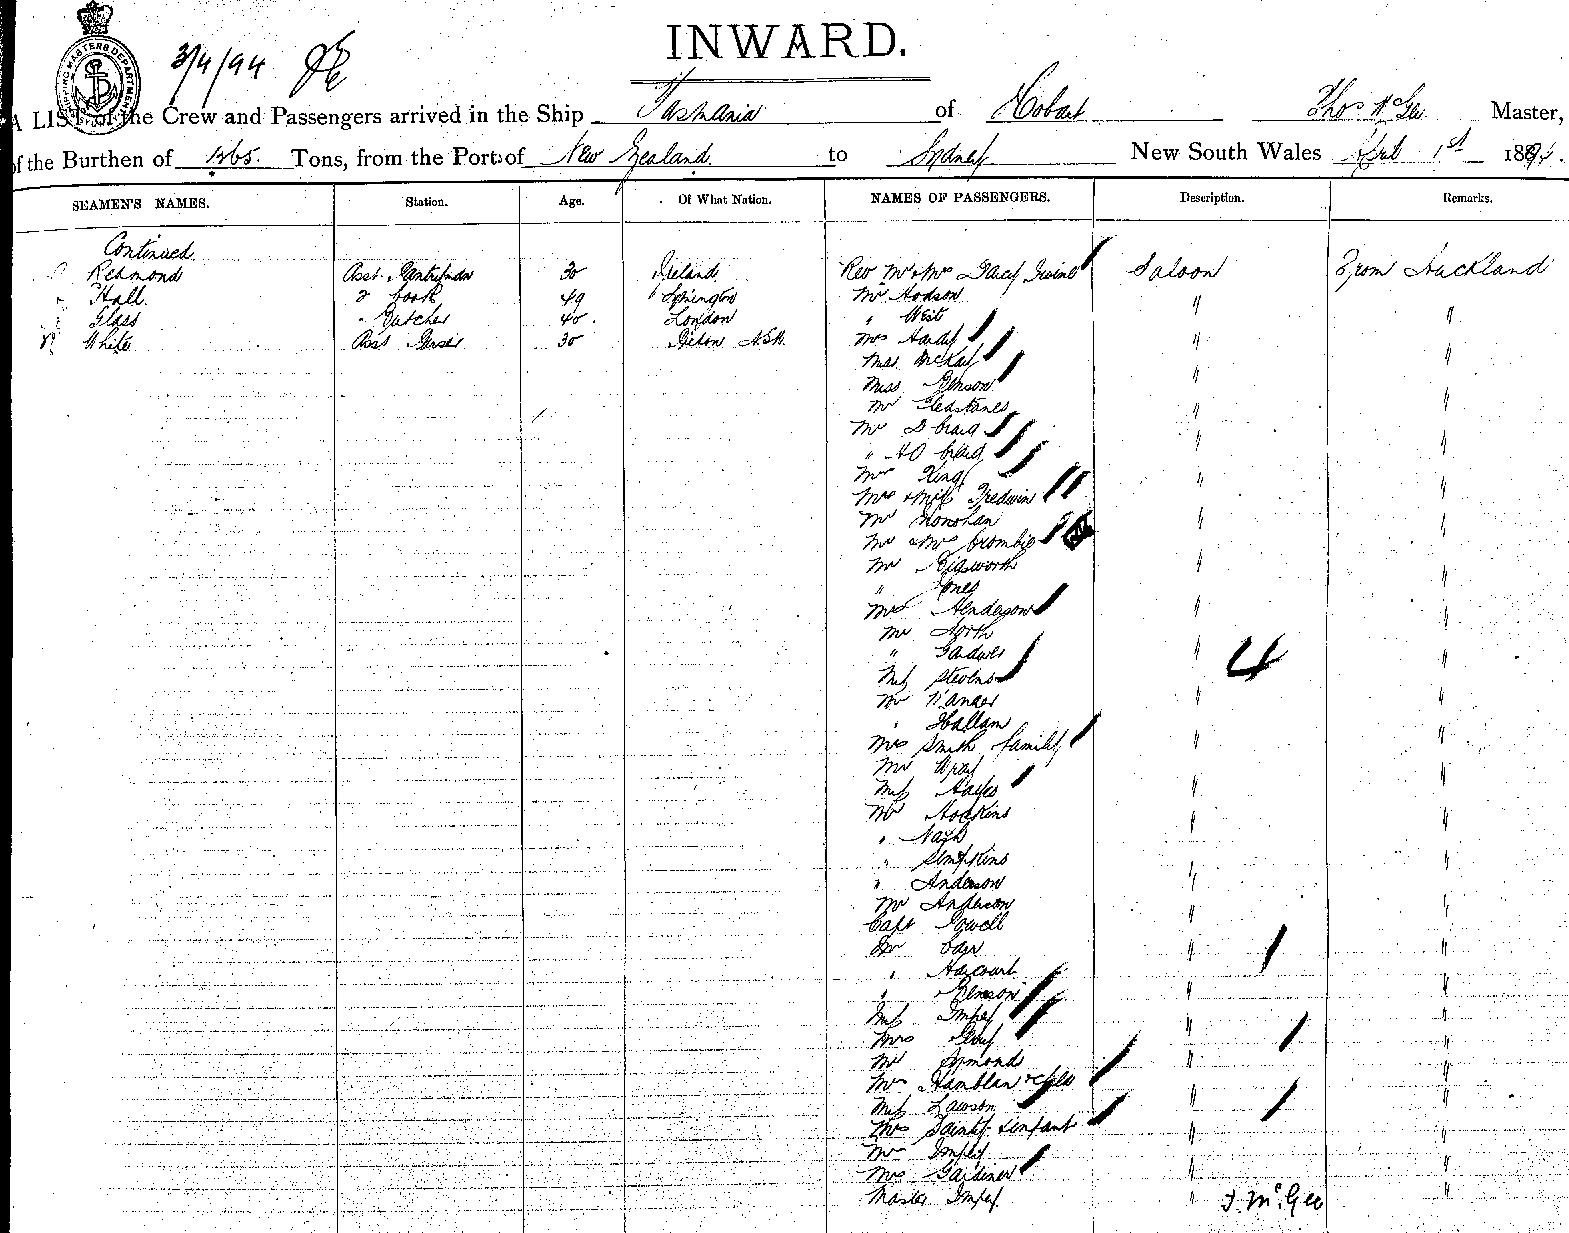 INWARD.
3/4/94
SHIPPING MASTERS DEPARTMENT
A LIST of the Crew and Passengers arrived in the Ship Tasmania of Hobart Thos McGee Master,
of the Burthen of Tons, from the Port of New Zealand to Sydney New South Wales April 1st 1894.
SEAMEN'S NAMES. Station. Age. Of What Nation. NAMES OF PASSENGERS. Description. Remarks.
Continued
Redmond Asst Pantryman 30 Ireland Rev Mr & Mrs Saloon From Auckland
Hall 2 Cook 49 Mr Hodson " "
Glass " Butcher 40 London " West
White Asst 30 N.S.W. Mrs Hardy " "
Miss McKay
Miss Benson "
Mr Gledstanes "
Mr D Craig "
" A O Craig "
Mr King "
Mrs & Miss Tredwin
Mr Monohan "
Mr & Mrs Crombie
Mr Rigsworth "
" Jones "
Mrs Henderson "
Mr North
" " 4
Miss Stevens
Mr "
" Hallam
Mrs Smith family "
Mr Wray "
Miss Hayes "
Mr Hodgkins
" Nash "
" Simpkins "
" Anderson "
Mr Anderson "
Capt Powell
Mr "
" Harcourt
" Benson "
Miss Impey
Mrs "
Mr Symonds "
Mrs Hamblan & child
Miss Lawson "
Mrs & infant "
Mr Impey
Mrs Gardiner "
Master Impey " T. McGee "